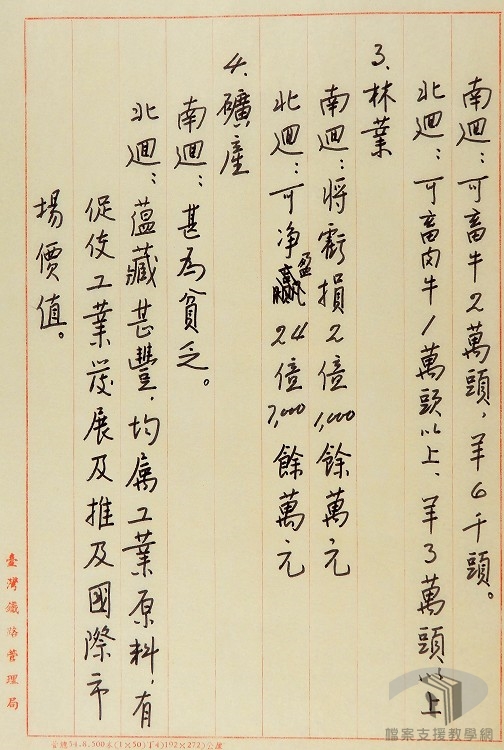 南迴：可畜牛2萬頭，羊6千頭。
北迴：可畜肉牛1萬頭以上、羊3萬頭以上
3、林業
南迴：將虧損2億1,000餘萬元
北迴：可净盈24億7,000餘萬元
4、礦產
南迴：甚為貧乏。
北迴：蘊藏甚豐，均屬工業原料，有
促使工業發展及推及國際市
場價值。
臺灣鐵路管理局
檔案支援教學網